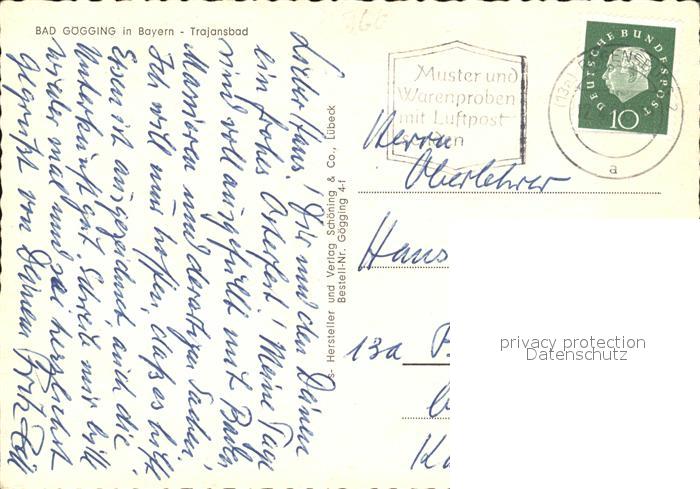 BAD GÖGGING in Bayern - Trajansbad
Lieber Hans! Dir und den Deinen
ein frohes Osterfest! Meine Tage
sind voll ausgefüllt mit Baden,
Massieren und derartigen Sachen.
Ich will nur hoffen, daß es hilft
Essen ist ausgezeichnet, auch die
Unterkunft gut. Schreib mir bitte
wieder mal und sei herzlichst
gegrüßt von Deinem Fritz
s- Hersteller und Verlag Schöning & Co., Lübeck
Bestell-Nr. Gögging 4-f
Muster und
Warenproben
mit Luftpost
senden
(13a)
2
a
DEUTSCHE BUNDESPOST
10
Herrn
Oberlehrer
Hans
13a
privacy protection
Datenschutz